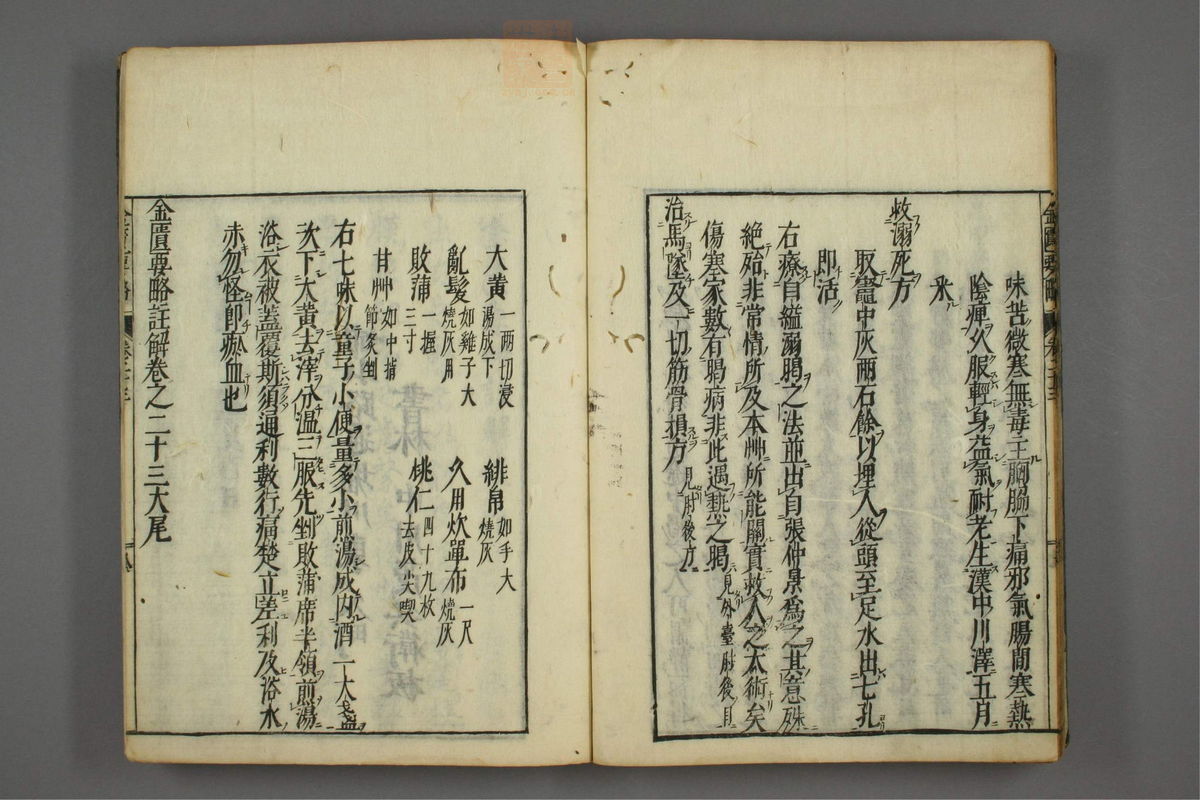 味苦微寒無毒主胸脇下痛邪氣腸間寒熱
陰痺久服輕身益氣耐老生漢中川澤五月
采
救溺死方
取竈中灰兩石餘以埋人從頭至足水出七孔
即活
右療自縊溺暍之法並出自張仲景為之其意殊
絶殆非常情所及本艸所能關實救人之大術矣
傷寒家數有暍病非此遇熱之暍 見外臺肘後目
治馬墜及一切筋骨損方 見肘後方
大黃 一兩切浸湯成下
緋帛 如手大燒灰
亂髮 如雞子大燒灰用
久用炊單布 一尺燒灰
敗蒲 一握三寸
桃仁 四十九枚去皮尖㕮
甘艸 如中指節炙剉
右七味以童子小便量多少煎湯成内酒一大盞
次下大黃去滓分温三服先剉敗蒲席半領煎湯
浴衣被蓋覆斯須通利數行痛楚立差利及浴水
赤勿怪即瘀血也
金匱要略註解卷之二十三大尾